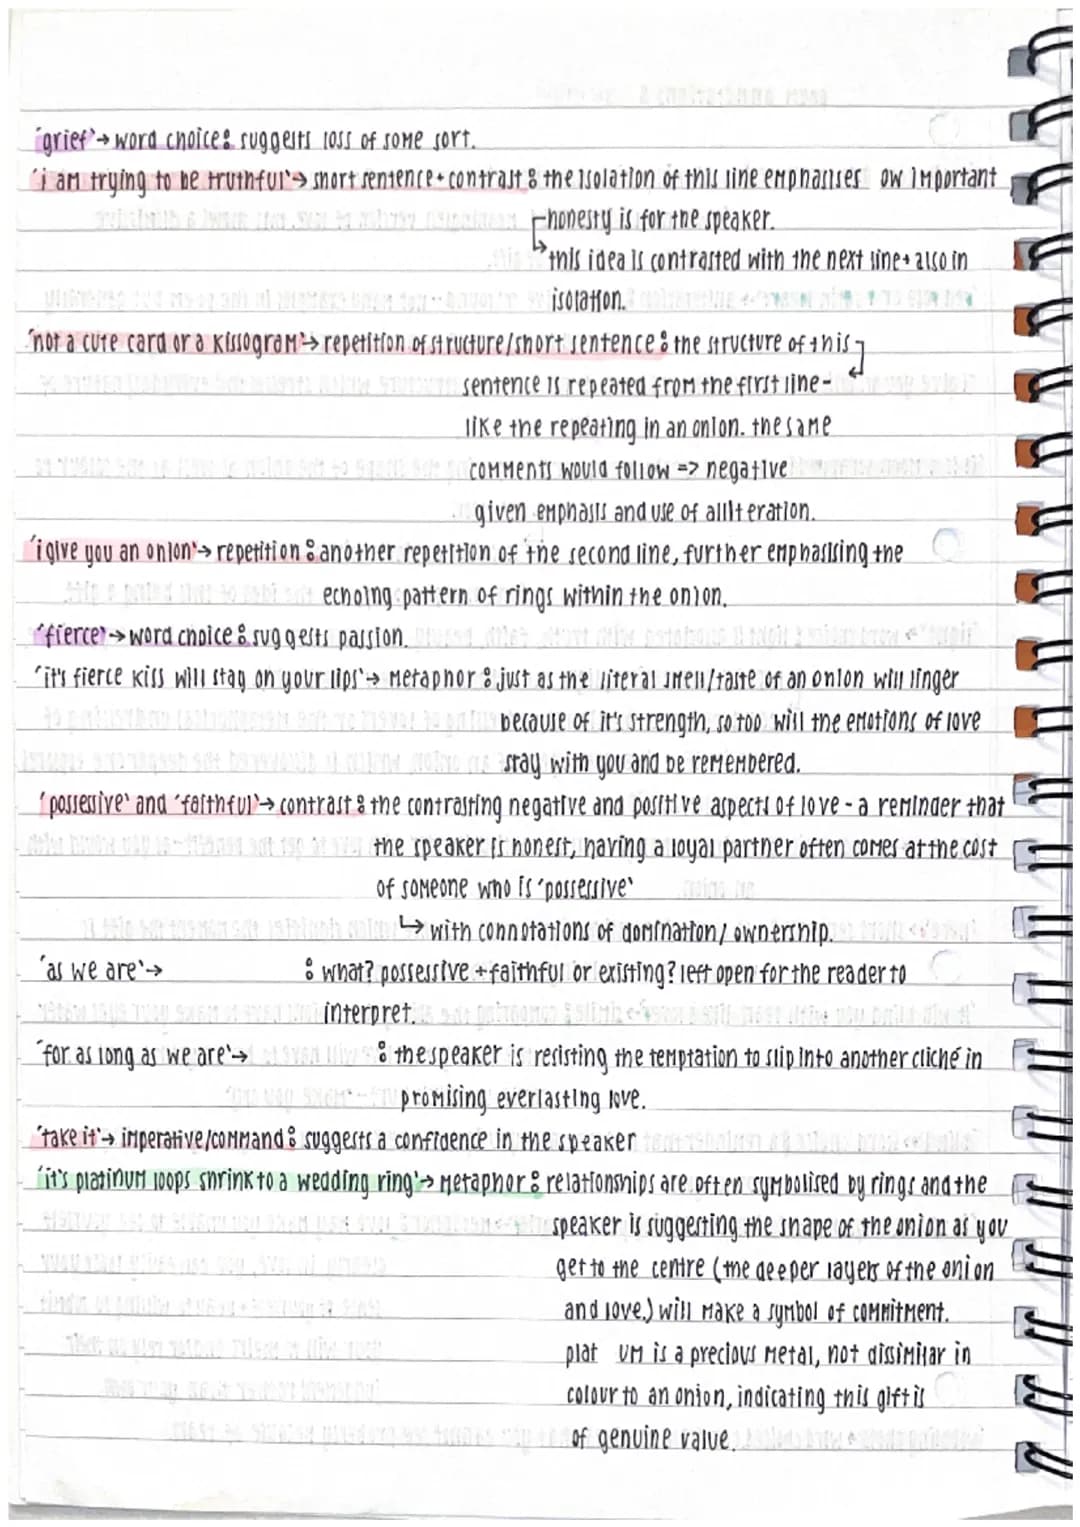 'grief' → word choice: suggests loss of some sort.
'i am trying to be truthful' → short sentence + contrast: the isolation of this line emphasises ow important
honesty is for the speaker.
↳ this idea is contrasted with the next line + also in
isolation.
'not a cute card or a kissogram' → repetition of structure/short sentence: the structure of this
sentence is repeated from the first line -
like the repeating in an onion. the same
comments would follow => negative
given emphasis and use of alliteration.
'i give you an onion' → repetition: another repetition of the second line, further emphasising the
echoing pattern of rings within the onion.
'fierce' → word choice: suggests passion.
'it's fierce kiss will stay on your lips' → metaphor: just as the literal smell/taste of an onion will linger
because of it's strength, so too will the emotions of love
stay with you and be remembered.
'possessive' and 'faithful' → contrast: the contrasting negative and positive aspects of love - a reminder that
the speaker is honest, having a loyal partner often comes at the cost
of someone who is 'possessive'
↳ with connotations of domination/ownership.
'as we are' → : what? possessive + faithful or existing? left open for the reader to
interpret.
'for as long as we are' → : the speaker is resisting the temptation to slip into another cliché in
promising everlasting love.
'take it' → imperative/command: suggests a confidence in the speaker
'it's platinum loops shrink to a wedding ring' → metaphor: relationships are often symbolised by rings and the
speaker is suggesting the shape of the onion as you
get to the centre (the deeper layers of the onion
and love.) will make a symbol of commitment.
plat um is a precious metal, not dissimilar in
colour to an onion, indicating this gift is
of genuine value.